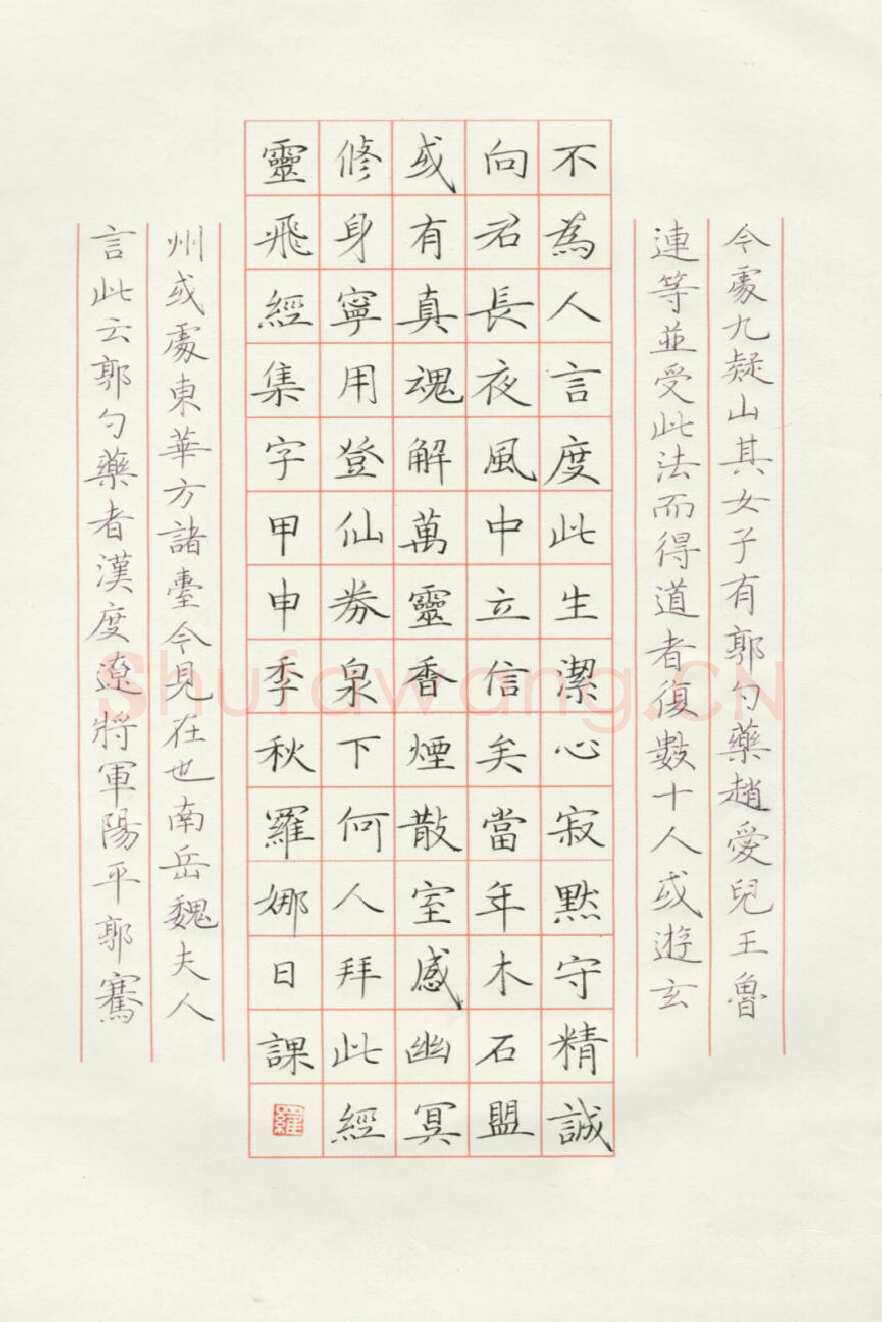 今處九疑山其女子有郭勺藥趙愛兒王魯
連等並受此法而得道者復數十人或遊玄
不為人言度此生潔心寂默守精誠
向君長夜風中立信矣當年木石盟
或有真魂解萬靈香煙散室感幽冥
修身寧用登仙券泉下何人拜此經
靈飛經集字甲申季秋羅娜日課
羅
州或處東華方諸臺今見在也南岳魏夫人
言此云郭勺藥者漢度遼將軍陽平郭騫
Shufawang.CN